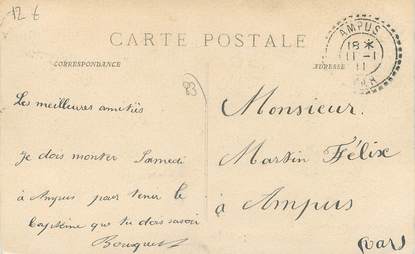 12 €
CARTE POSTALE
CORRESPONDANCE
ADRESSE
AMPUS
18 *
11 - 1
11
VAR
83
Les meilleures amitiés
Je dois monter Samedi
à Ampus pour tener le
Capitéine que tu dois savoir
Bouquet
Monsieur.
Martin Félix
à Ampus
(Var)